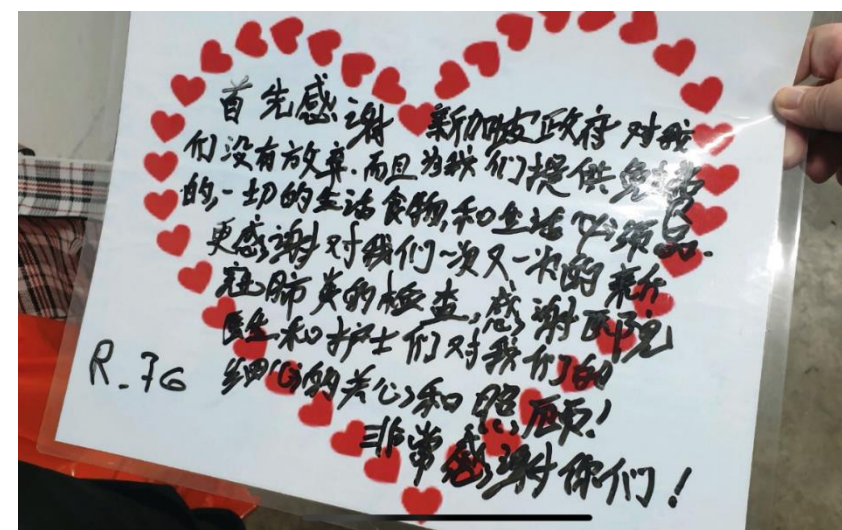 首先感谢 新加坡政府对我
们没有放弃.而且为我们提供免费
的,一切的生活食物,和生活必须品.
更感谢对我们一次又一次的新介
冠肺炎的检查,感谢医院
医生和护士们对我们的
细心的关心和照顾!
非常感谢你们!
R_76